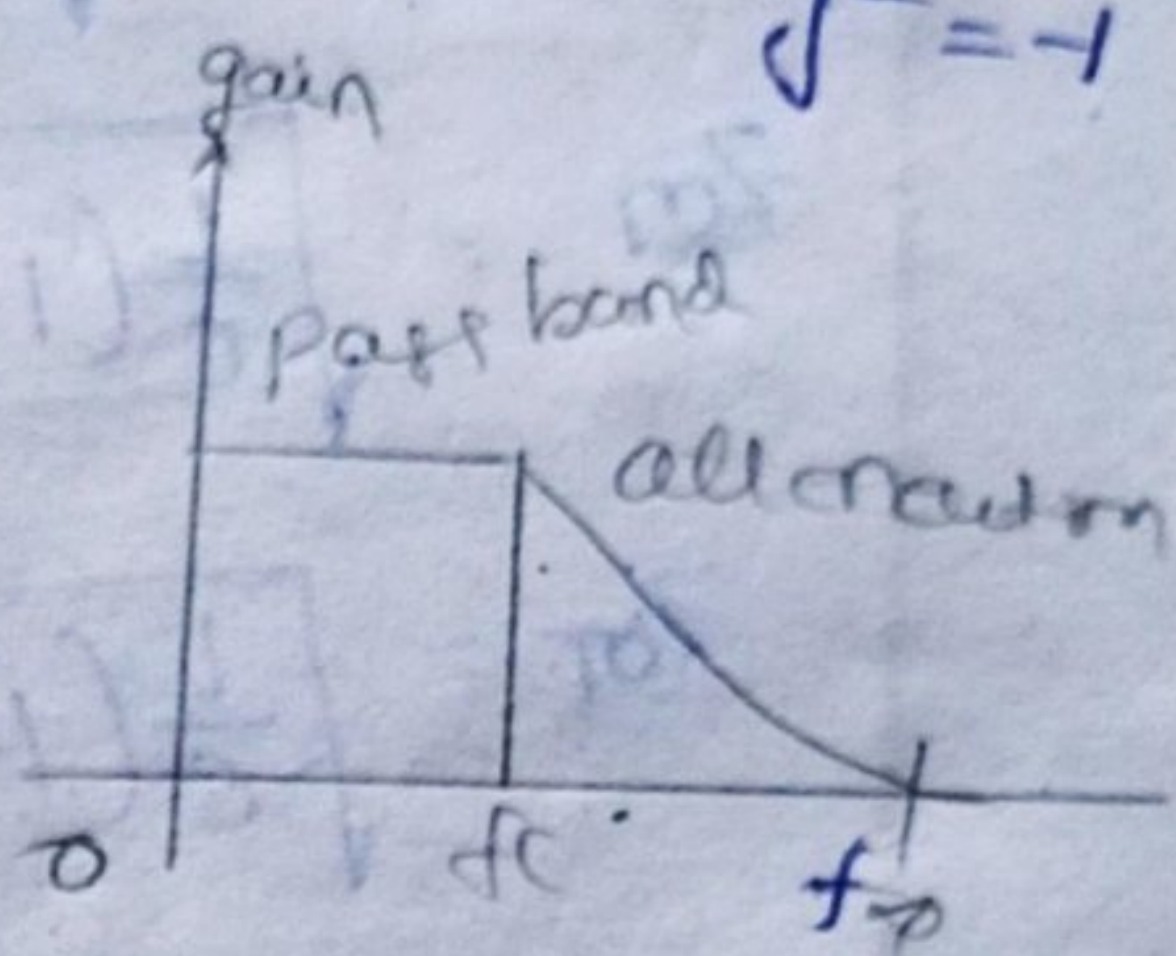 √ = -1
gain
pass band
attenuation
0
fc
f∞